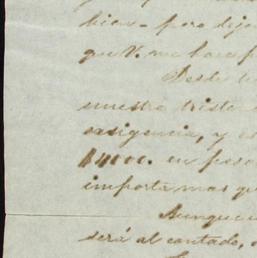 bien - pero dije
que V. me hace f
Desde l
nuestra trista
exsigencia, y e
$4000. en peso
importa mas qu
Aunque
será al contado,